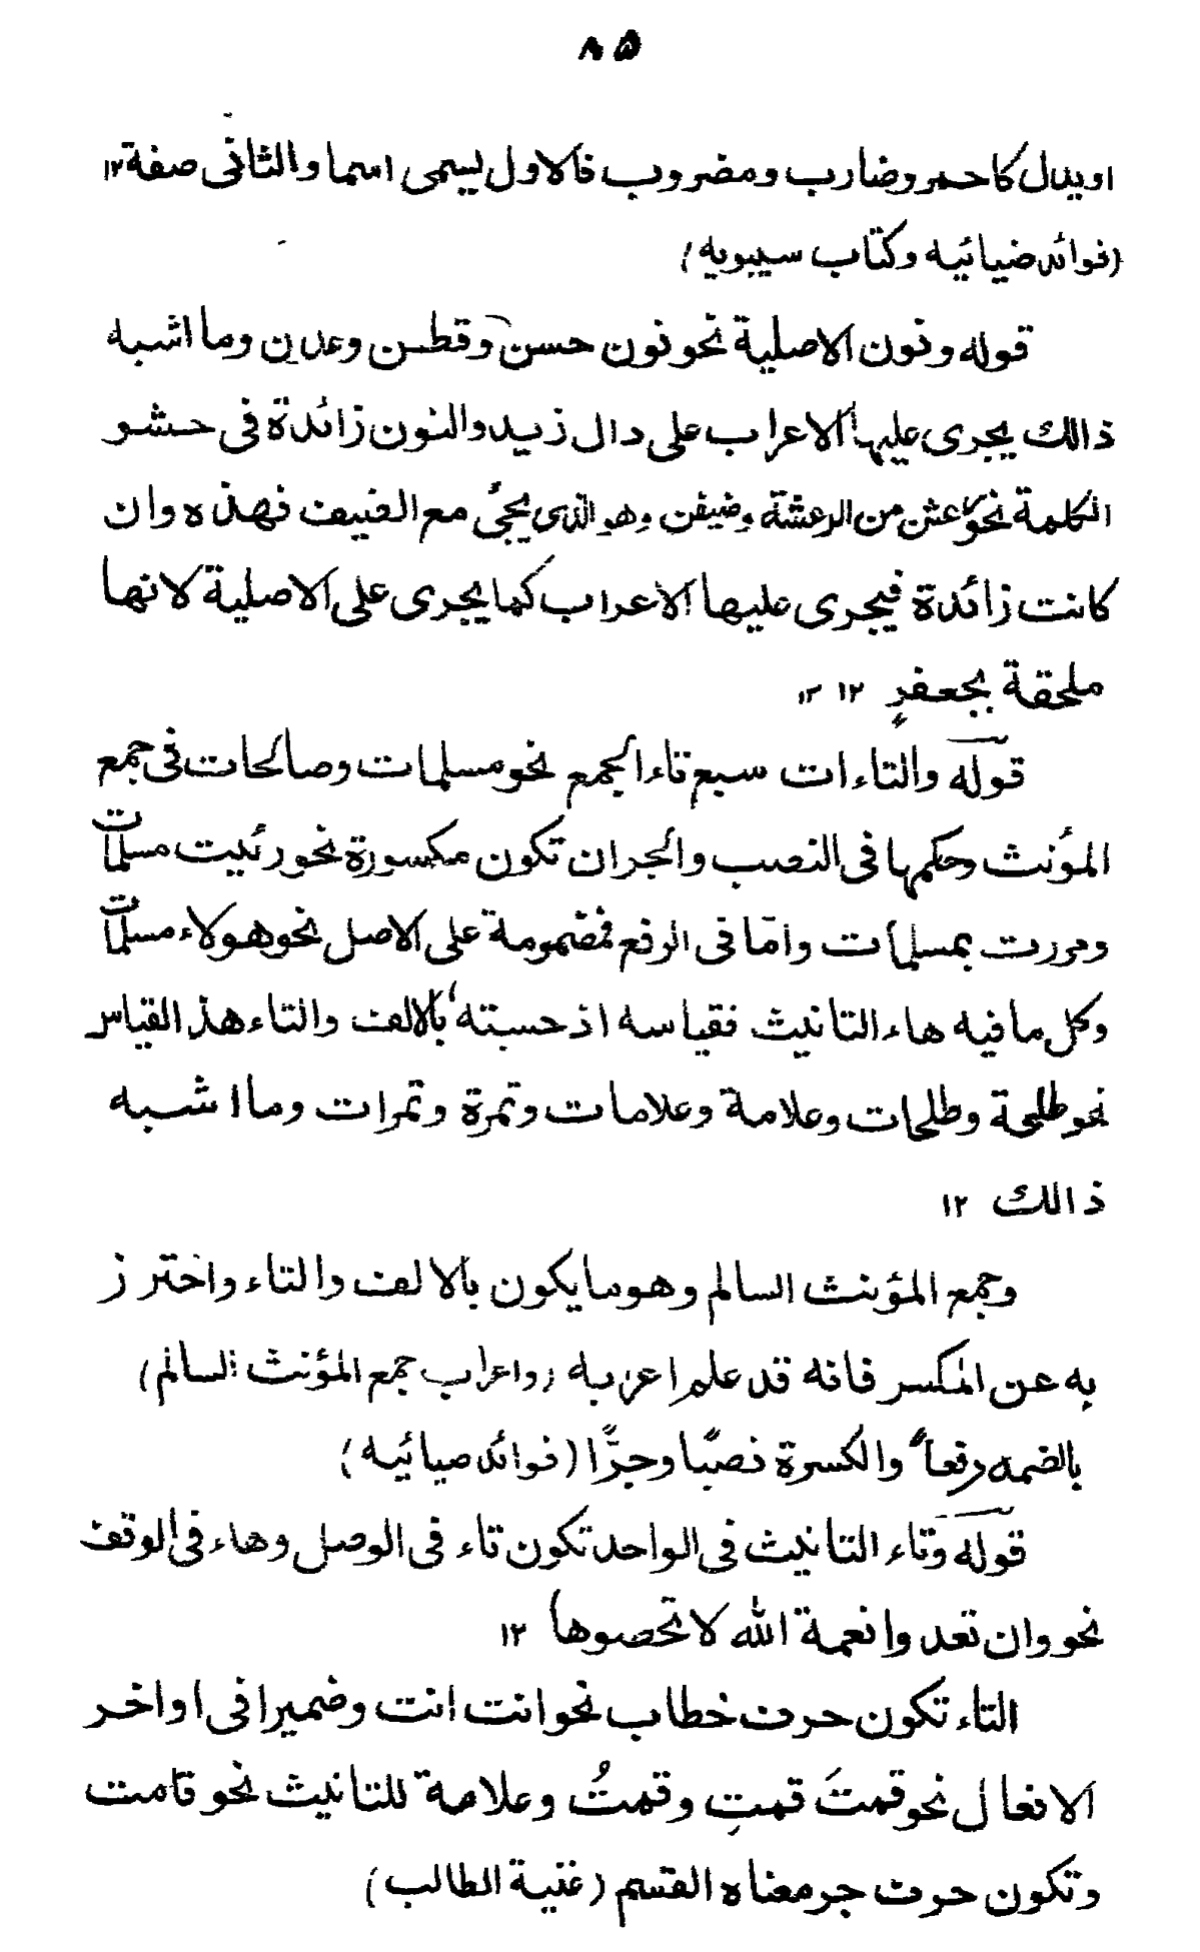 ۸۵
اويدال كاحمر وضارب ومضروب فالاول ليسمى اسما والثانى صفة ۱۲
(فوائد ضيائيه وكتاب سيبويه)
قوله ونون الاصلية نحو نون حسن وقطن وعدن وما اشبه
ذالك يجرى عليها الاعراب على دال زيد والنون زائدة فى حشو
الكلمة نحو رعشن من الرعشة وضيفن وهو الذى يجئ مع الضيف فهذه وان
كانت زائدة فيجرى عليها الاعراب كما يجرى على الاصلية لانها
ملحقة بجعفرٍ ۱۲ ۱۲
قوله والتاءات سبع تاء الجمع نحو مسلمات وصالحات فى جمع
المؤنث وحكمها فى النصب والجر ان تكون مكسورة نحو رئيت مسلمات
ومررت بمسلمات واما فى الرفع فمضمومة على الاصل نحو هولاء مسلمات
وكل ما فيه هاء التانيث فقياسه اذ حسبته بالالف والتاء هذ القياس
نحو طلحة وطلحات وعلامة وعلامات وتمرة وتمرات وما اشبه
ذالك ۱۲
وجمع المؤنث السالم وهو ما يكون بالالف والتاء واحترز
به عن المكسر فانه قد علم اعربه (واعراب جمع المؤنث السالم)
بالضمه رفعاً والكسرة نصبًا وجرًّا (فوائد صيائيه)
قوله وتاء التانيث فى الواحد تكون تاء فى الوصل وهاء فى الوقف
نحو وان تعدوا نعمة الله لا تحصوها ۱۲
التاء تكون حرف خطاب نحو انت انت وضميرا فى اواخر
الافعال نحو قمتَ قمتِ وقمتُ وعلامة للتانيث نحو قامت
وتكون حرف جر معناه القسم (غنية الطالب)